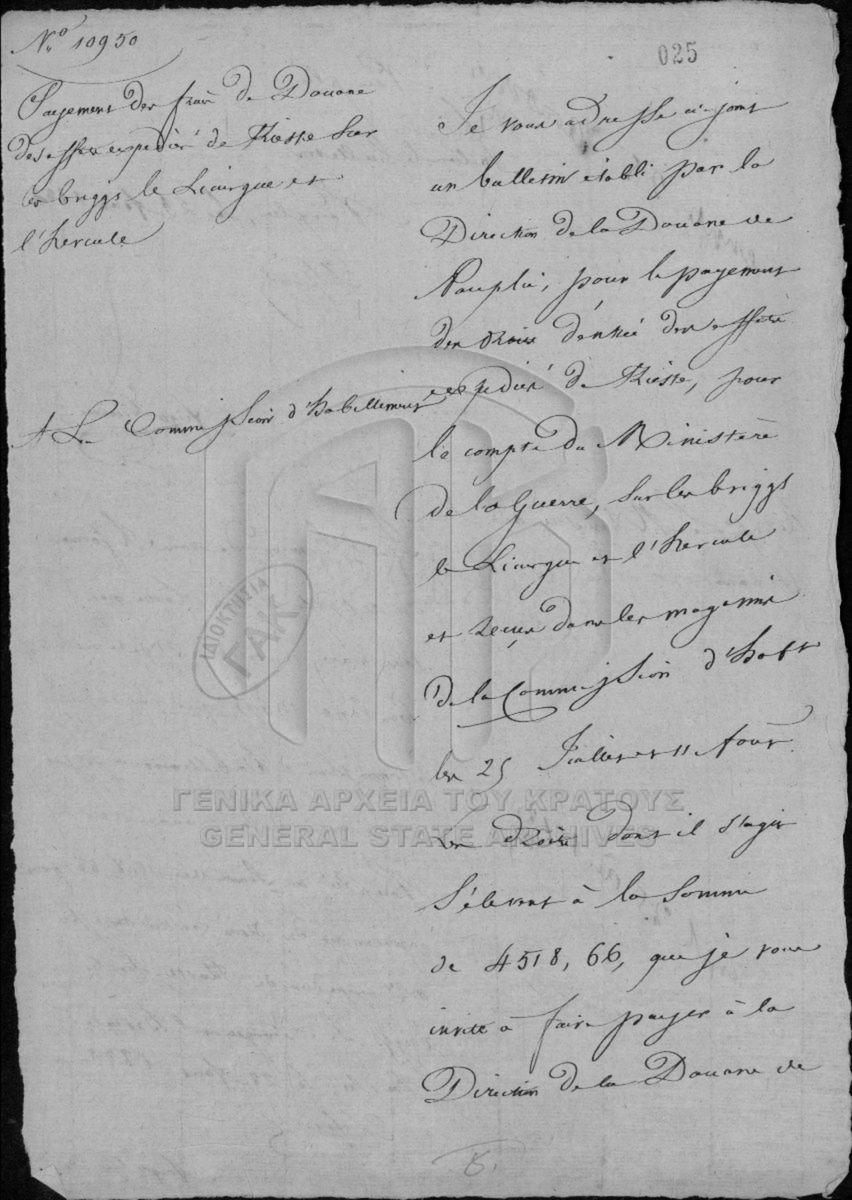 No 10950
025
Payement des frais de Douane
des effets expediés de Trieste sur
les briggs le Licurgue et
l'hercule
A La Commission d'habillement
Je vous adresse ci-joint
un bulletin établi par la
Direction de la Douane de
Nauplie, pour le payement
des droits d'entrée des effets
expediés de Trieste, pour
le compte du Ministère
de la Guerre, sur les briggs
le Licurgue et l'hercule
et reçus dans les magasins
de la Commission d'habt
les 25 Juillet et 11 Aout.
Les droits dont il s'agit
s'élevent à la somme
de 4518,66, que je vous
invite à faire payer à la
Direction de la Douane de
ΙΔΙΟΚΤΗΣΙΑ
Γ.Α.Κ.
ΓΕΝΙΚΑ ΑΡΧΕΙΑ ΤΟΥ ΚΡΑΤΟΥΣ
GENERAL STATE ARCHIVES